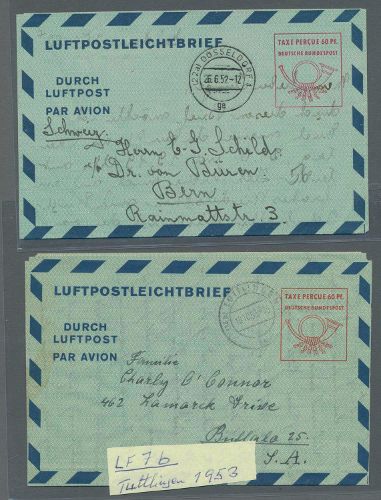 LUFTPOSTLEICHTBRIEF
TAXE PERÇUE 60 PF.
DEUTSCHE BUNDESPOST
DURCH
LUFTPOST
PAR AVION
(22a) DÜSSELDORF
26.6.52-12
ge
Schweiz
Herrn C. G. Schild
c/o Dr. von Büren
Bern
Rainmattstr. 3.
LUFTPOSTLEICHTBRIEF
TAXE PERÇUE 60 PF.
DEUTSCHE BUNDESPOST
DURCH
LUFTPOST
PAR AVION
Familie
Charly O'Connor
462 Lamarck Drive
Buffalo 25.
S.A.
LF 7b
Tuttlingen 1953